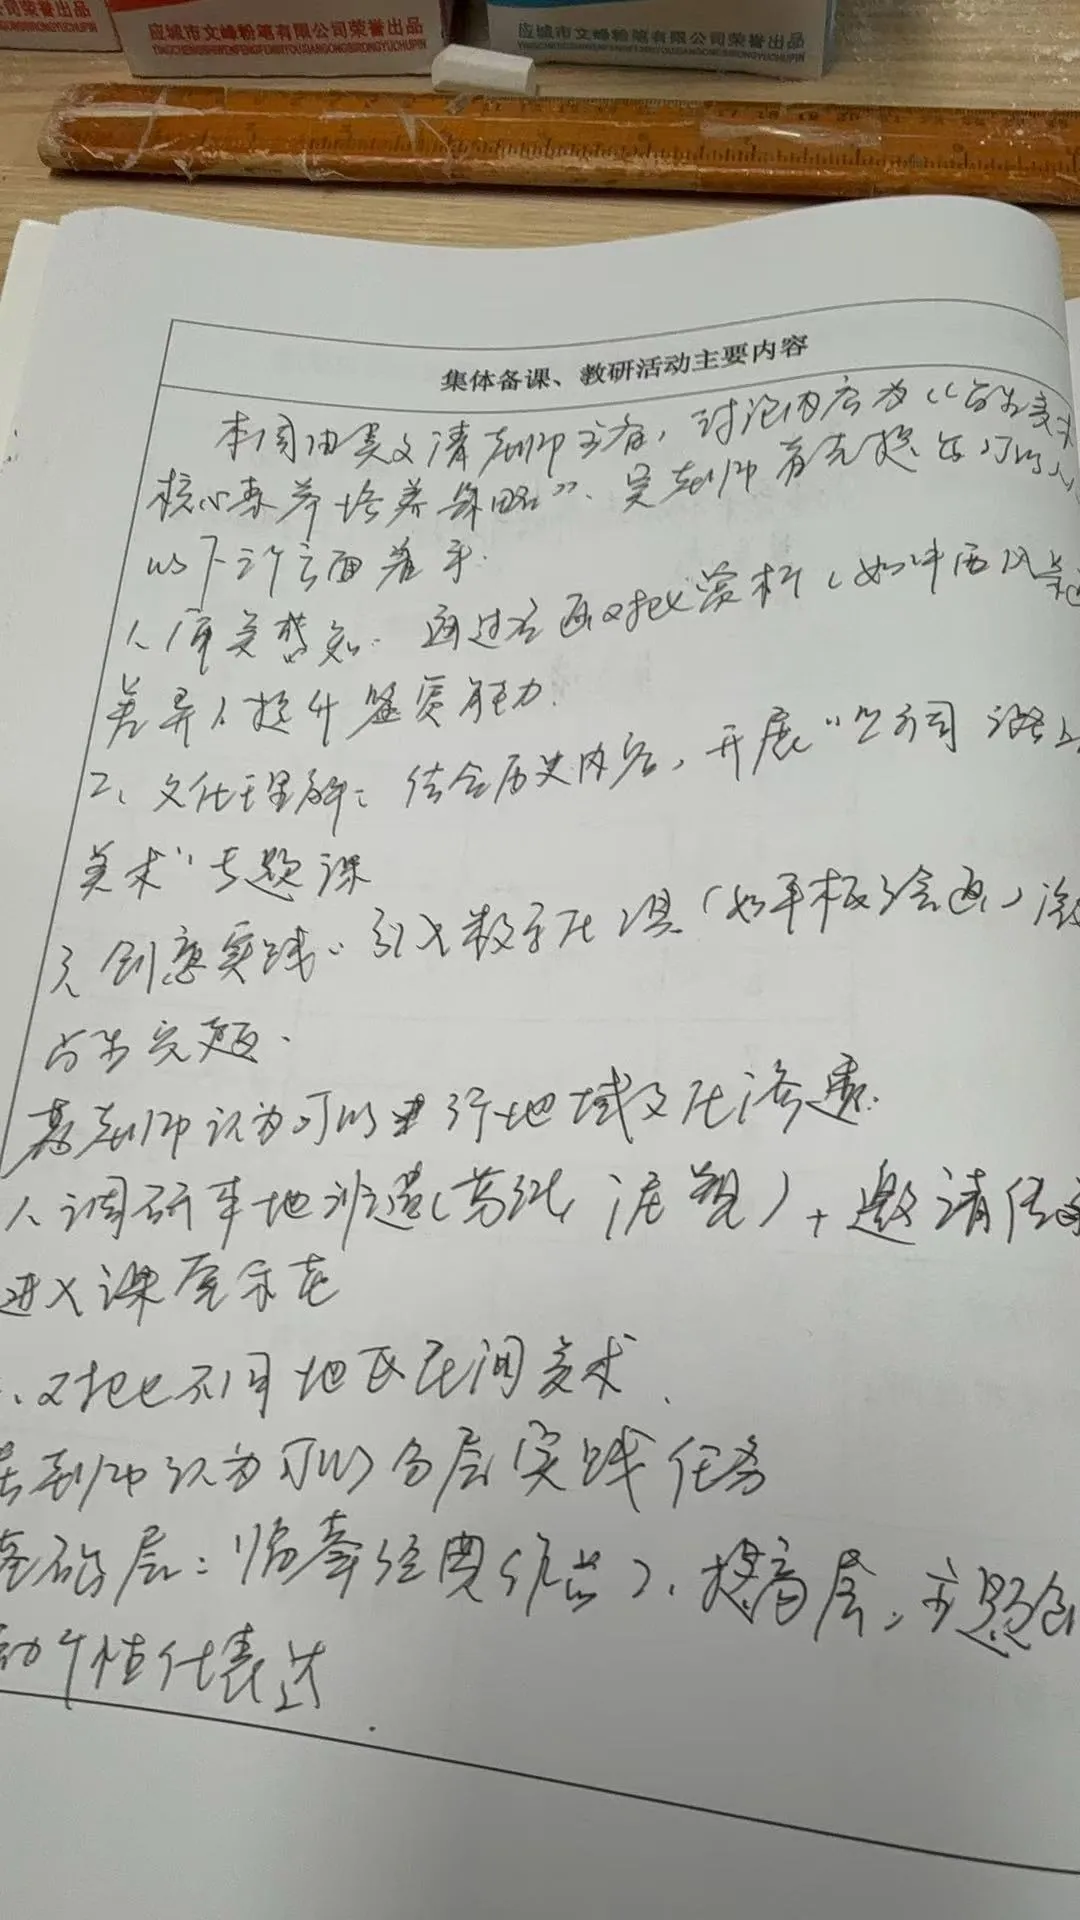 应城市文峰粉笔有限公司荣誉出品
YINGCHENGSHIWENFENGFENBIYOUXIANGONGSIRONGYUCHUPIN
应城市文峰粉笔有限公司荣誉出品
YINGCHENGSHIWENFENGFENBIYOUXIANGONGSIRONGYUCHUPIN
集体备课、教研活动主要内容
本周由吴文清老师主备,讨论内容为“学生美术
核心素养培养策略”.吴老师首先提出可以从
以下三个方面着手.
1、审美感知:通过名画对比赏析(如中西风景画
差异)提升鉴赏能力.
2、文化理解:结合历史内容,开展“
美术”专题课
3、创意实践:引入数字化工具(如平板绘画)激
学生兴趣.
老师认为可以进行地域文化渗透:
1、调研本地非遗(剪纸,泥塑),邀请传承
进入课堂示范
、对比不同地区民间美术.
老师认为可以分层实践任务
基础层:临摹经典作品、提高层:主题创
个性化表达.